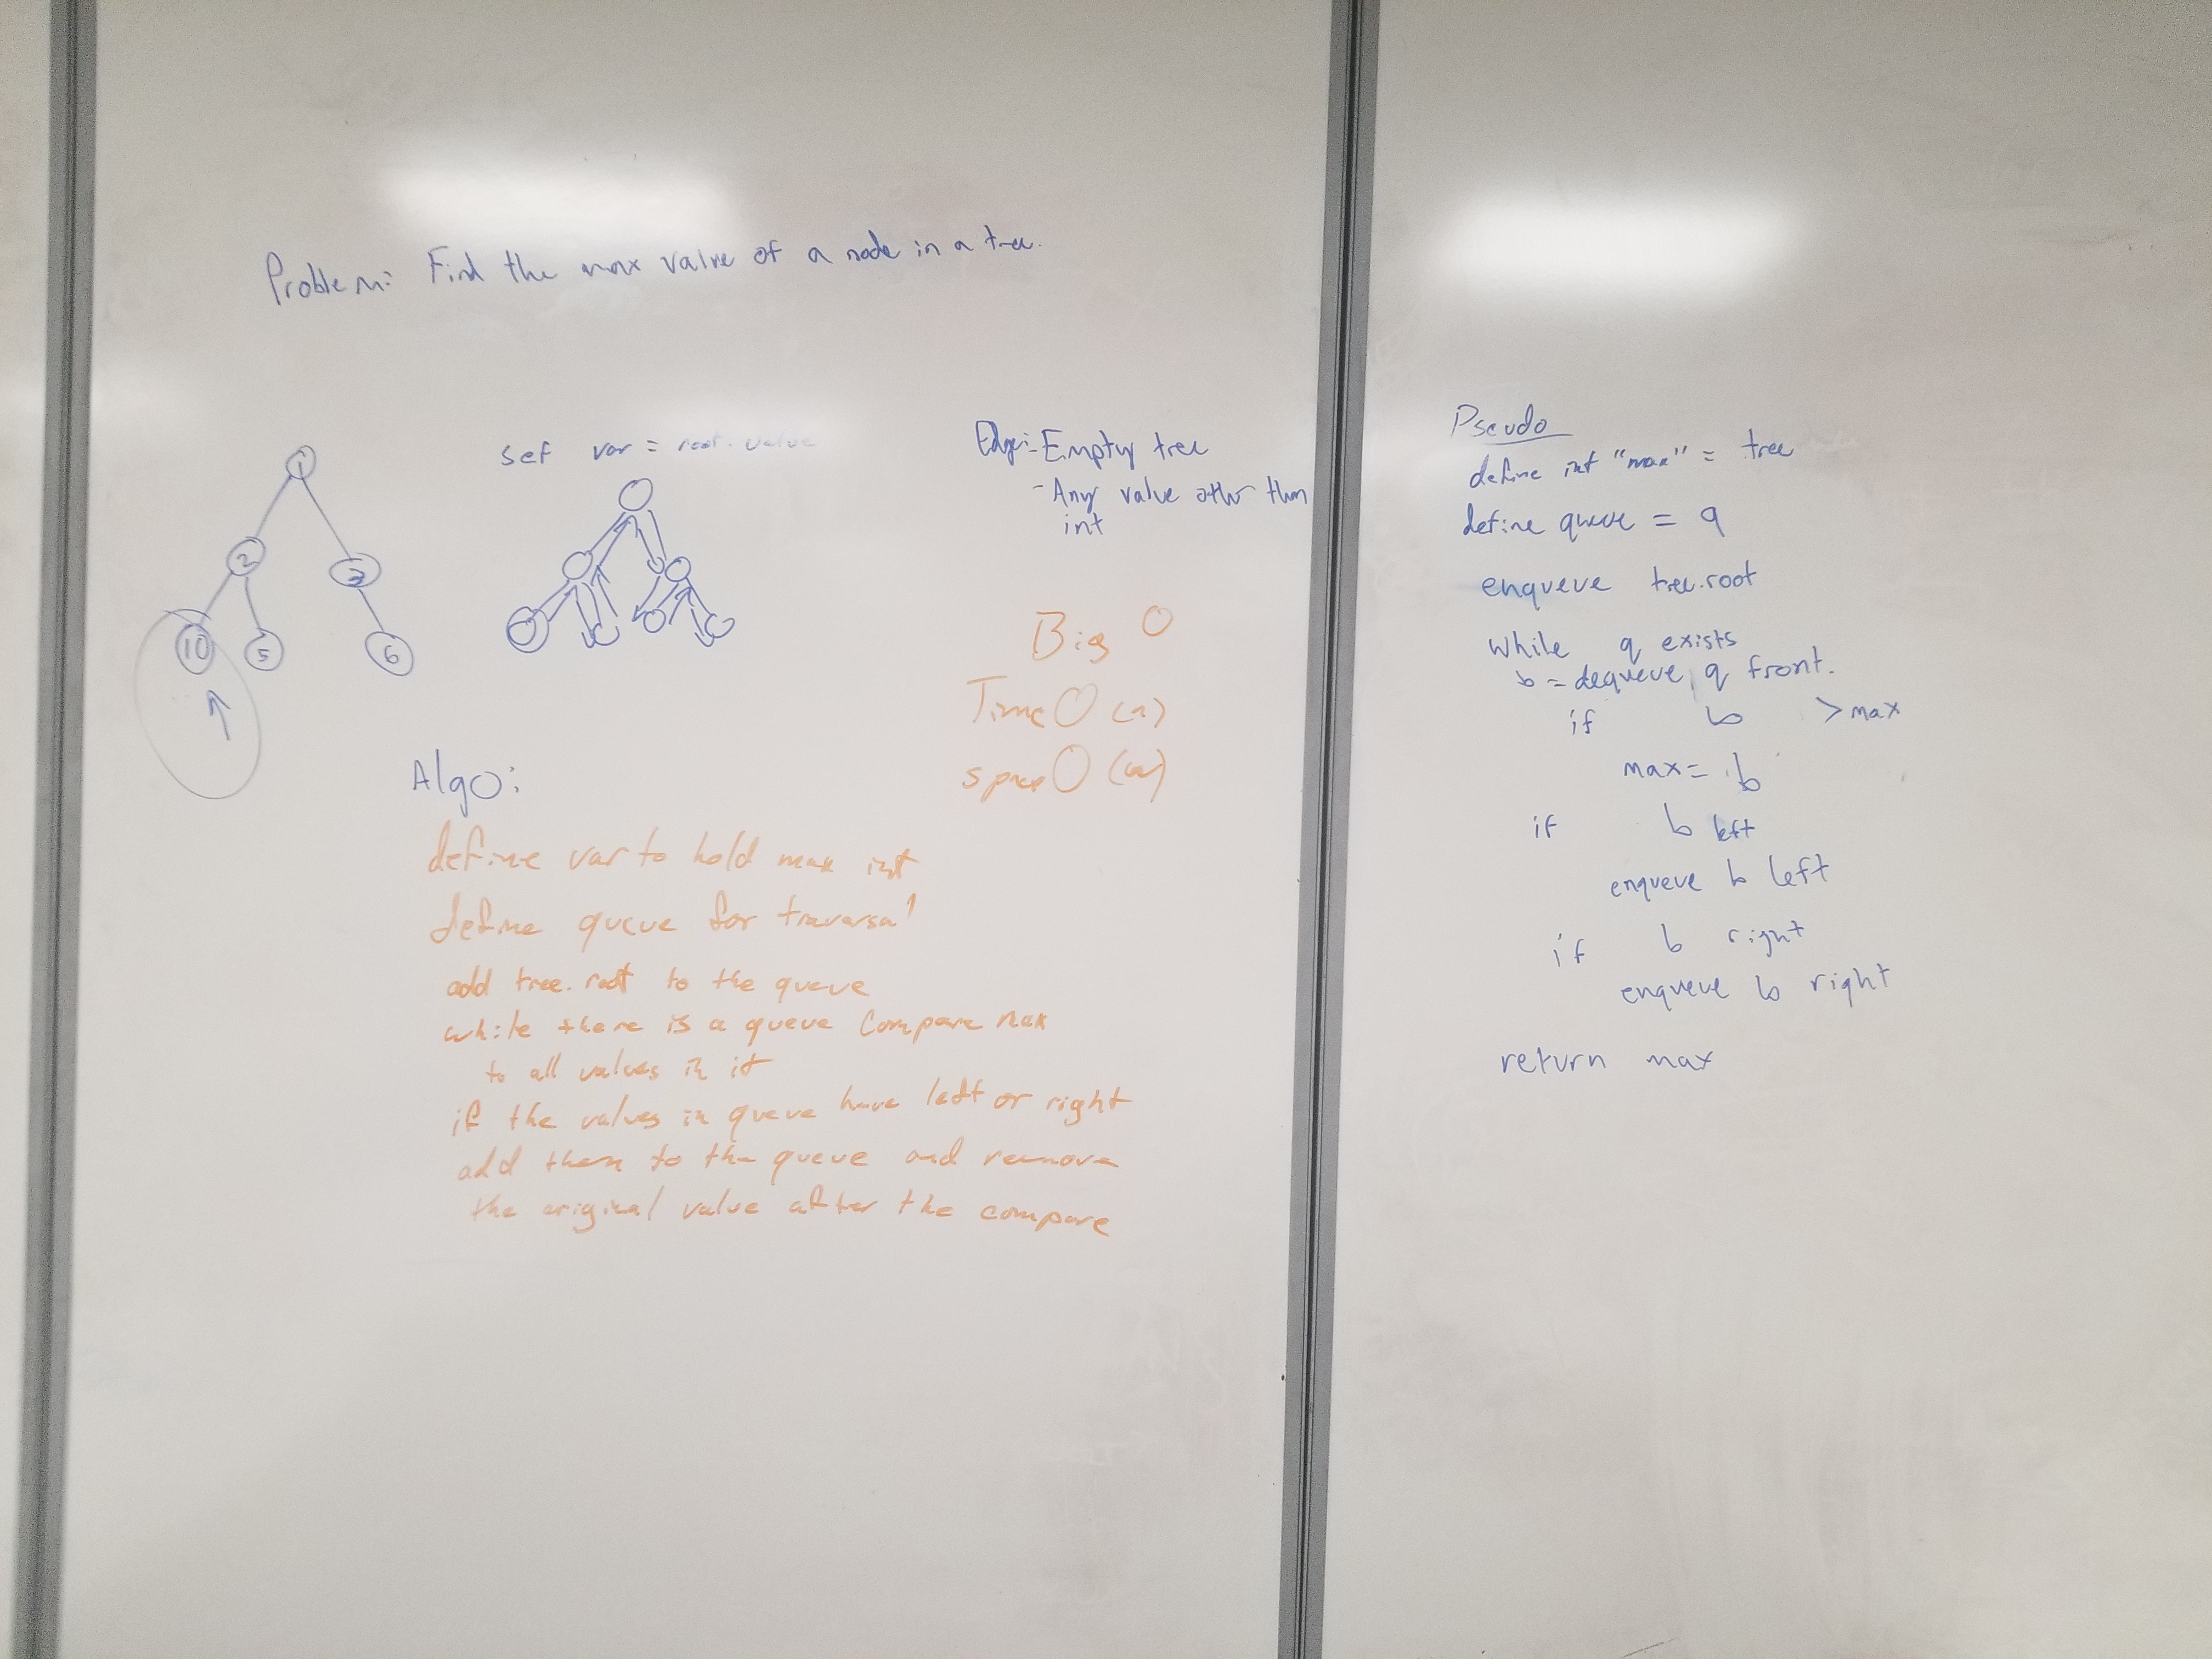 Problem: Find the max value of a node in a tree.
set var = root.value
1
2
3
10
5
6
Edge: - Empty tree
- Any value other than
int
Big O
Time O (n)
space O (w)
Algo:
define var to hold max int
define queue for traversal
add tree.root to the queue
while there is a queue Compare max
to all values in it
if the values in queue have left or right
add them to the queue and remove
the original value after the compare
Pseudo
define int "max" = tree
define queue = q
enqueue tree.root
while q exists
b = dequeue q front.
if b > max
max = b
if b left
enqueue b left
if b right
enqueue b right
return max